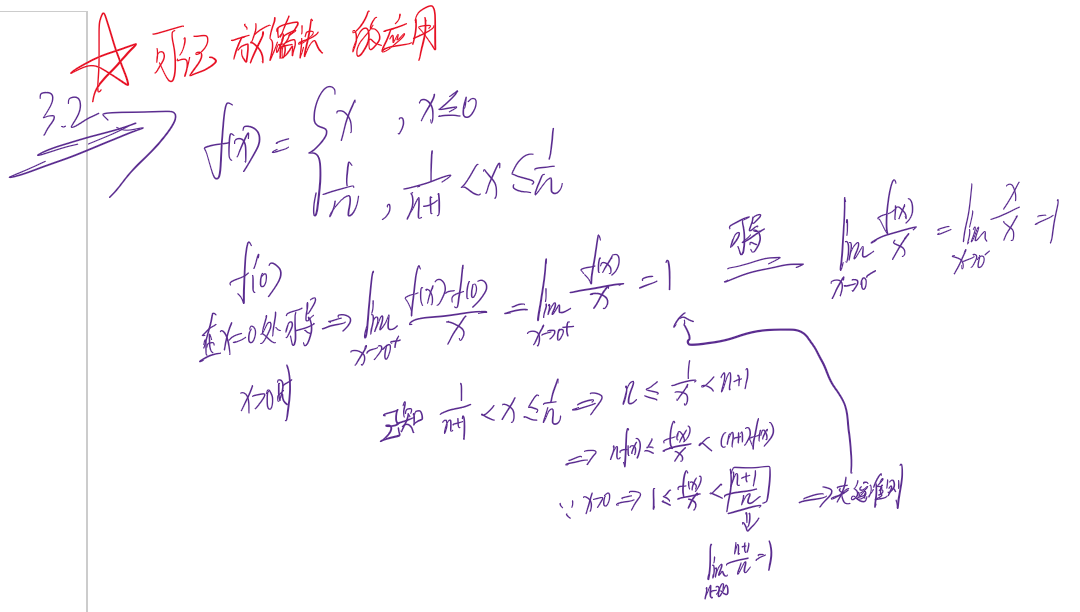 可记 放缩法 的应用
3.2
f(x) = { x , x≤0
1/n , 1/(n+1) < x ≤ 1/n
f'(0)
在x=0处可导 ⇒ lim x→0⁺ (f(x)-f(0))/x = lim x→0⁺ f(x)/x = 1 可导 lim x→0⁻ f(x)/x = lim x→0⁻ x/x = 1
x>0时
已知 1/(n+1) < x ≤ 1/n ⇒ n ≤ 1/x < n+1
⇒ nf(x) ≤ f(x)/x < (n+1)f(x)
∵ x>0 ⇒ 1 ≤ f(x)/x < (n+1)/n ⇒ 夹逼准则
⇓
lim n→∞ (n+1)/n = 1